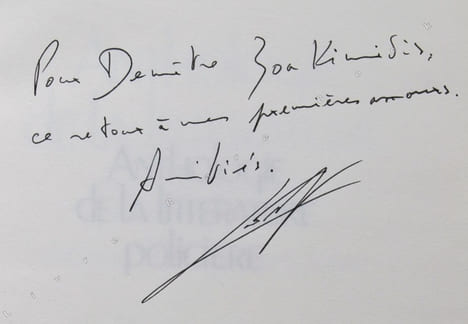 Pour Demètre Ioakimidis,
ce retour à mes premières amours.
Amitiés.
DE LA LITTÉRATURE
POLICIÈRE